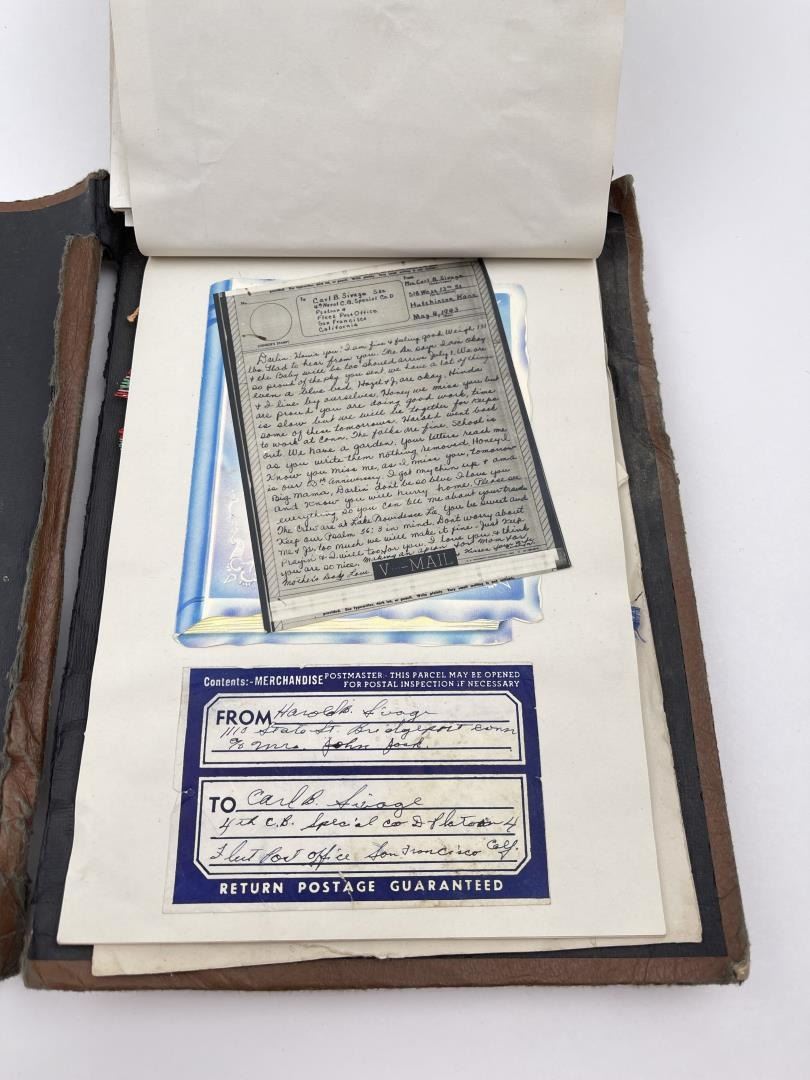 To
Carl B. Sivage S2c
4th Naval C.B. Special Co. D
Platoon 4
Fleet Post Office
San Francisco
California
From
Mrs. Carl B. Sivage
518 West 12th St
Hutchinson Kans
May 8, 1943
Darlin: How's you? I am fine & feeling good. Weigh 131
lbs. Glad to hear from you. The Dr. says I am okay
& the Baby will be too should arrive July 1. We are
so proud of the pkg you sent we have a lot of things
even a blue bed. Hazel & J. are okay.
& I live by ourselves. Honey we miss you but
are proud you are doing good work, time
is slow but we will be together for keeps
some of these tomorrows. Harold went back
to work at Conn. The folks are fine. School is
out. We have a garden. Your letters reach me
as you write them nothing removed. Honey I
know you miss me, as I miss you, tomorrow
is our Anniversary. I got my chin up & am a
Big Mama, Darlin don't be so blue I love you
and know you will hurry home. Please see
everything so you can tell me about your travels
The Crew are at Lake Providence La. you be sweet and
Keep our Psalm 56:3 in mind. Dont worry about
me & Jr. too much we will make it fine. Just keep
Prayin & I will too for you. I love you & think
you are so nice. Making an apron for Mom for
Mother's Day Love
V···—MAIL
provided. Use typewriter, dark ink, or pencil. Write plainly. Very small writing is not suitable.
Contents:-MERCHANDISE POSTMASTER - THIS PARCEL MAY BE OPENED
FOR POSTAL INSPECTION IF NECESSARY
FROM Harold B. Sivage
1110 State St. Bridgeport Conn
% Mrs. John
TO Carl B. Sivage
4th C.B. Special Co D Platoon 4
Fleet Post Office San Francisco Calf.
RETURN POSTAGE GUARANTEED